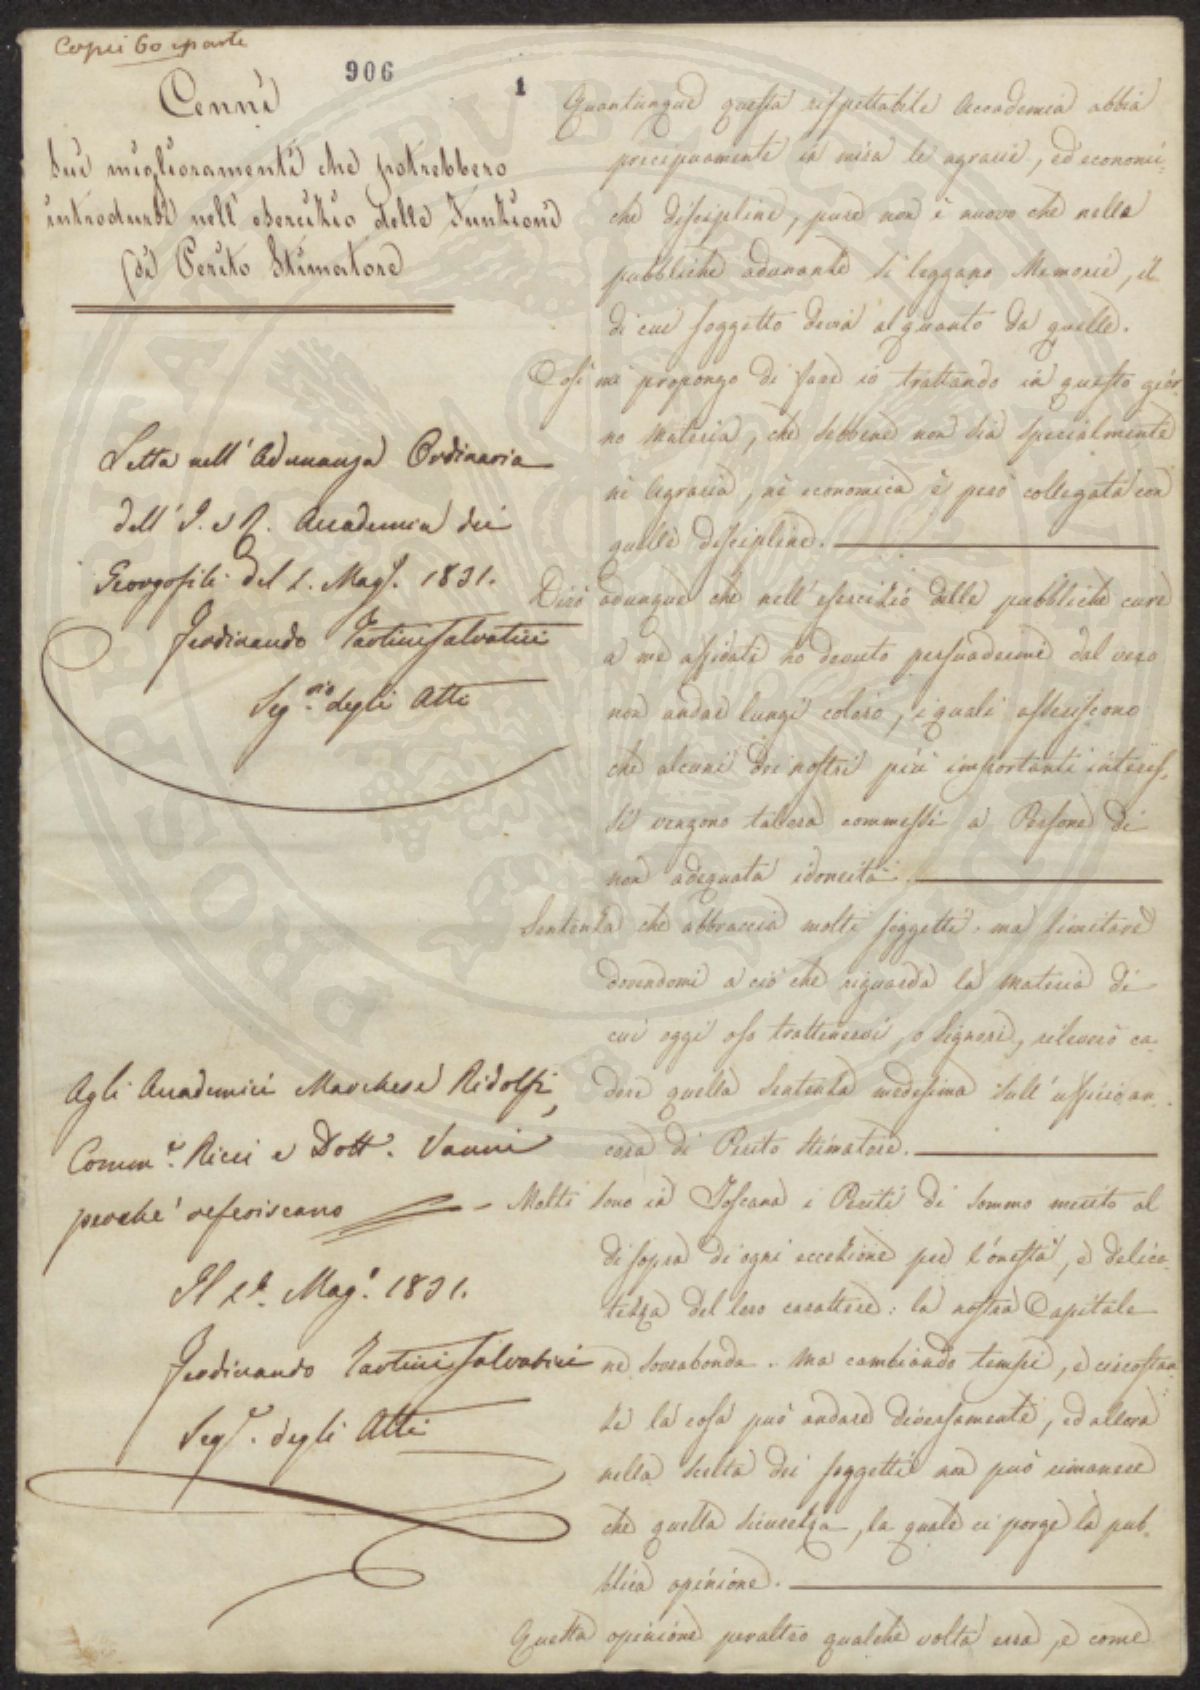 906
1
Cenni
Sui miglioramenti che potrebbero
introdursi nell'esercizio delle Funzioni
di Perito Stimatore
Letta nell'Adunanza Ordinaria
dell'I. e R. Accademia dei
Georgofili del 1. Magg. 1831.
Ferdinando Tartini Salvatici
Seg.rio degli Atti
Agli Accademici Marchese Ridolfi,
Comm.e Ricci e Dott. Vanni
perché referiscano
Il 1.o Mag.o 1831.
Ferdinando Tartini Salvatici
Seg.o degli Atti
Quantunque questa rispettabile Accademia abbia
precipuamente in mira le agrarie, ed economi-
che discipline, pure non è nuovo che nelle
pubbliche adunanze si leggano Memorie, il
di cui soggetto devia alquanto da quelle.
Così mi propongo di fare io trattando in questo gior-
no materia, che sebbene non sia specialmente
nè Agraria, nè economica è però collegata con
quelle discipline.
Dirò adunque che nell'esercizio delle pubbliche cure
a me affidate ho dovuto persuadermi dal vero
non andar lungi coloro, i quali asseriscono
che alcuni dei nostri più importanti interes-
si vengono talora commessi a Persone di
non adeguata idoneità.
Sentenza che abbraccia molti soggetti: ma limitare
dovendomi a ciò che riguarda la materia di
cui oggi oso trattenervi, o Signori, rileverò ca-
dere quella sentenza medesima sull'ufficio an-
cora di Perito Stimatore.
Molti sono in Toscana i Periti di sommo merito al
di sopra di ogni eccezione per l'onestà, e delica-
tezza del loro carattere: la nostra Capitale
ne sovrabonda. Ma cambiando tempi, e circostan-
ze la cosa può andare diversamente, ed allora
nella scelta dei soggetti non può rimanere
che quella sicurezza, la quale ci porge la pub-
blica opinione.
Questa opinione peraltro qualche volta erra, e come